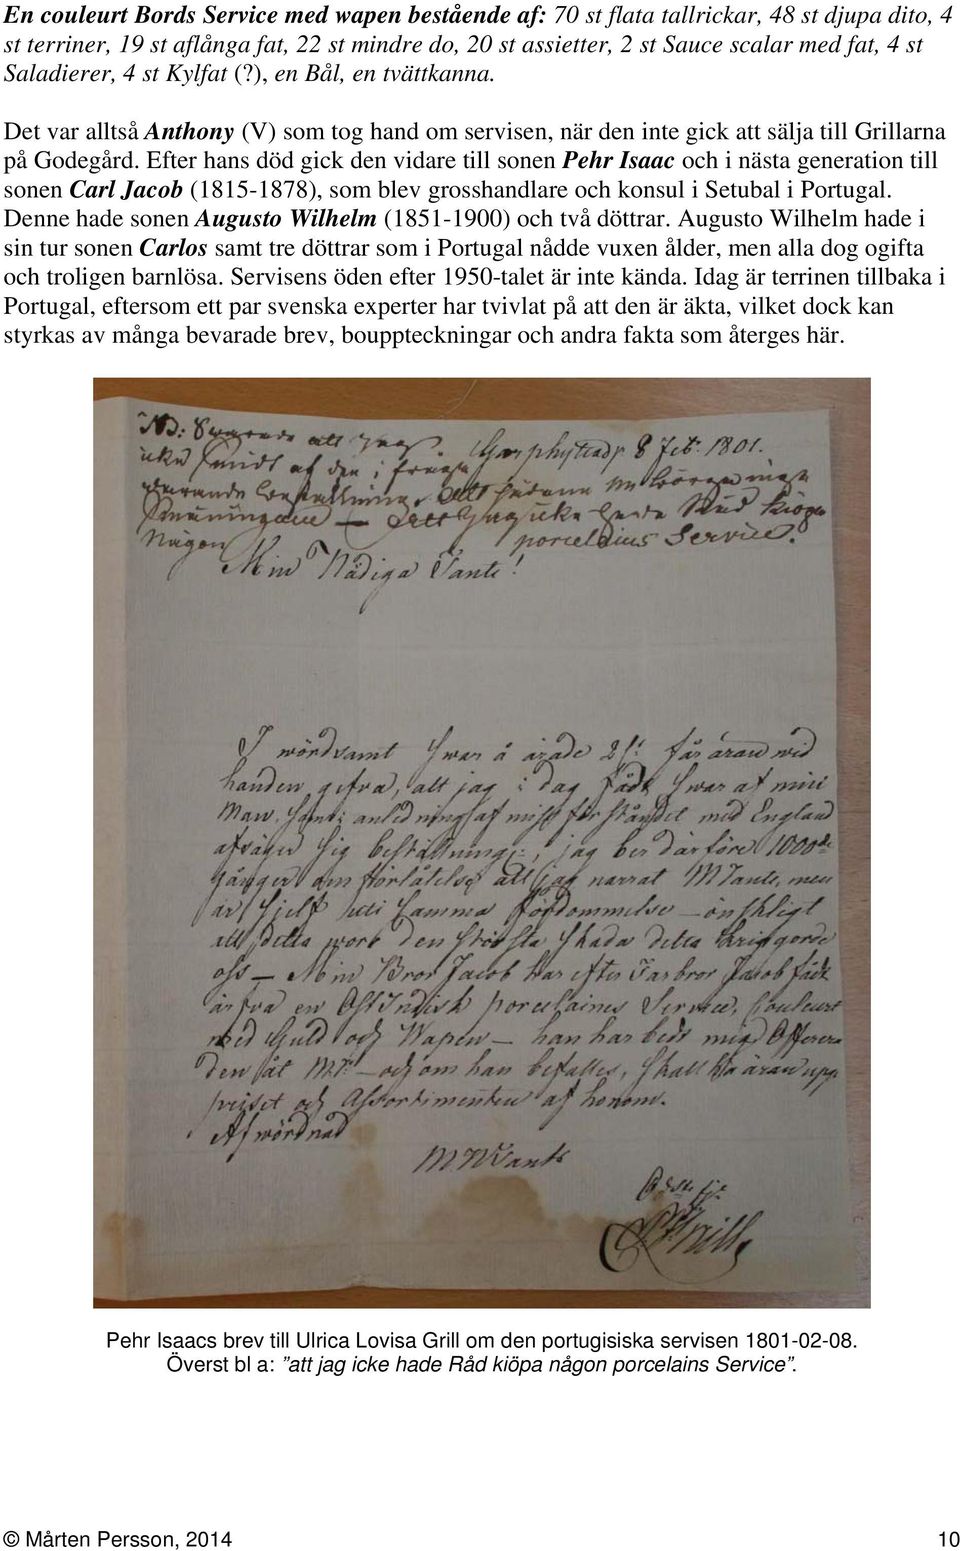 En couleurt Bords Service med wapen bestående af: 70 st flata tallrickar, 48 st djupa dito, 4
st terriner, 19 st aflånga fat, 22 st mindre do, 20 st assietter, 2 st Sauce scalar med fat, 4 st
Saladierer, 4 st Kylfat (?), en Bål, en tvättkanna.
Det var alltså Anthony (V) som tog hand om servisen, när den inte gick att sälja till Grillarna
på Godegård. Efter hans död gick den vidare till sonen Pehr Isaac och i nästa generation till
sonen Carl Jacob (1815-1878), som blev grosshandlare och konsul i Setubal i Portugal.
Denne hade sonen Augusto Wilhelm (1851-1900) och två döttrar. Augusto Wilhelm hade i
sin tur sonen Carlos samt tre döttrar som i Portugal nådde vuxen ålder, men alla dog ogifta
och troligen barnlösa. Servisens öden efter 1950-talet är inte kända. Idag är terrinen tillbaka i
Portugal, eftersom ett par svenska experter har tvivlat på att den är äkta, vilket dock kan
styrkas av många bevarade brev, bouppteckningar och andra fakta som återges här.
NB: Swarade att jag Garphyttadr 8 Feb: 1801.
icke af den i
warande beställning
att jag icke hade Råd kiöpa
Någon porcelains Service.
Min Nådiga Tante!
I wördsamt Swar å ärade 2 får äran wid
handen gifva, att jag i dag fådt Swar af min
Man, anledning af missförståndet med England
afsäger Sig beställning, jag ber därföre 1000de
gånger om förlåtelse att jag narrat M Tante, men
är Sjelf uti Samma fördömmelse – önskligt
att detta wore den största Skada detta krig gorde
oss – Min Bror Jacob har efter Farbror Jacob fådt
ärfva en OstIndisk porcelaines Service, Couleurt
med Guld och Wapen – han har bedt mig Offerera
den åt MT: – och om han befalles, Skall ha äran uppge
priset och Assortimenten af honom.
Af wördnad
M N Tants
Grill
Pehr Isaacs brev till Ulrica Lovisa Grill om den portugisiska servisen 1801-02-08.
Överst bl a: ”att jag icke hade Råd kiöpa någon porcelains Service”.
© Mårten Persson, 2014 10